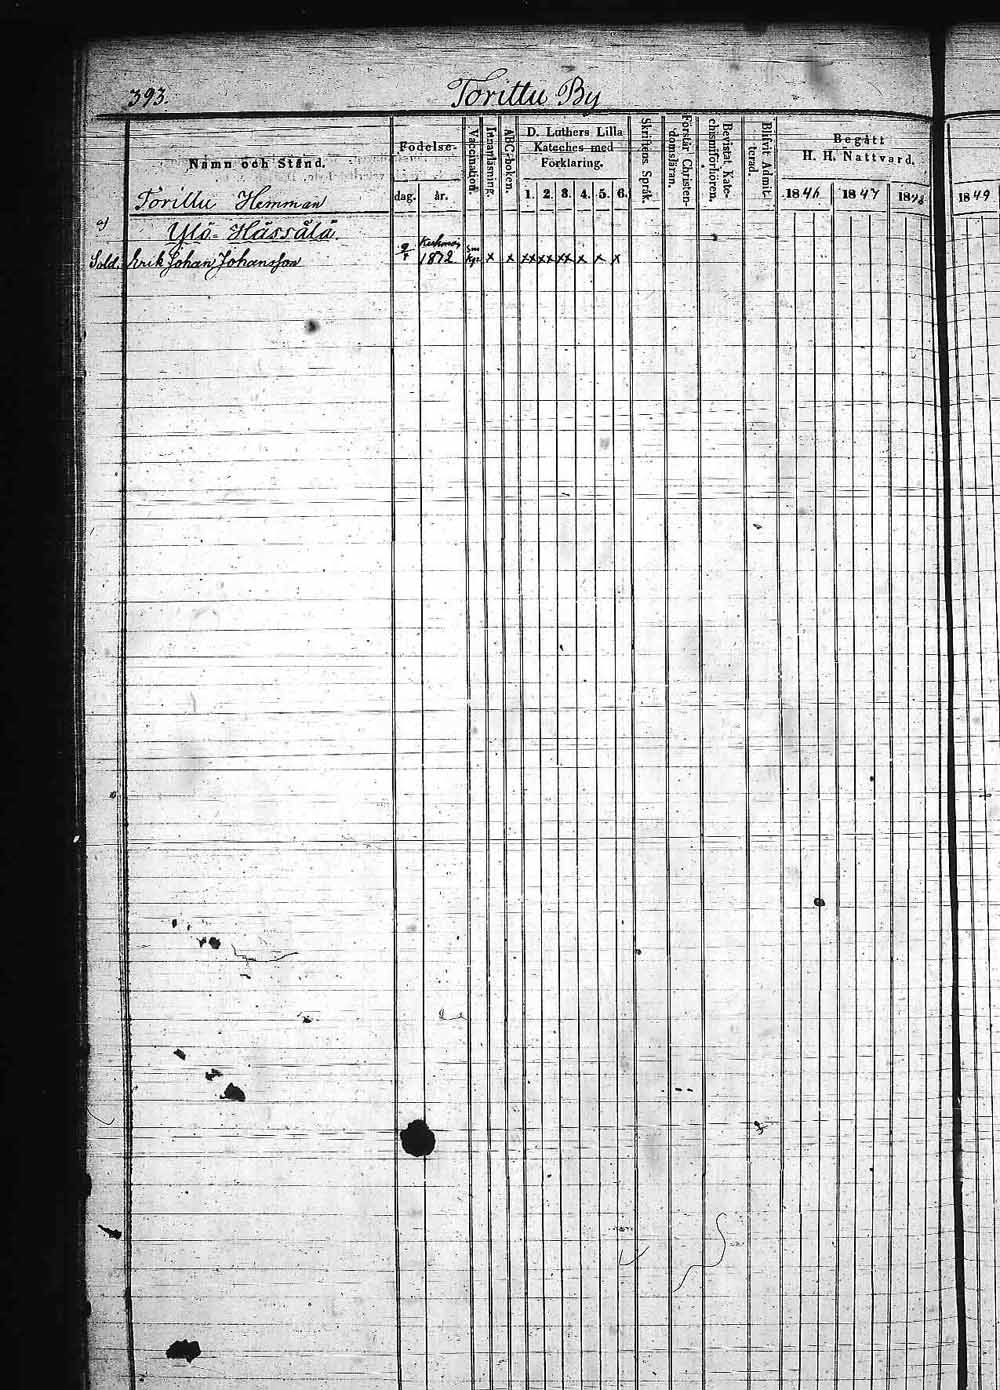 393.
Torittu By
Namn och Stånd.
Födelse-
dag.
år.
Vaccination.
Innanläsning.
ABC-boken.
D. Luthers Lilla
Kateches med
Förklaring.
1. 2. 3. 4. 5. 6.
Skriftens Språk.
Förstår Christen-
domsläran.
Bevistat Kate-
chismiförhören.
Blivit Admit-
terad.
Begått
H. H. Nattvard.
1846
1847
1848
1849
Torittu Hemman
a)
Ylö-Hässälä
Sold. Erik Johan Johansson
1812
x x xx xx xx x x x